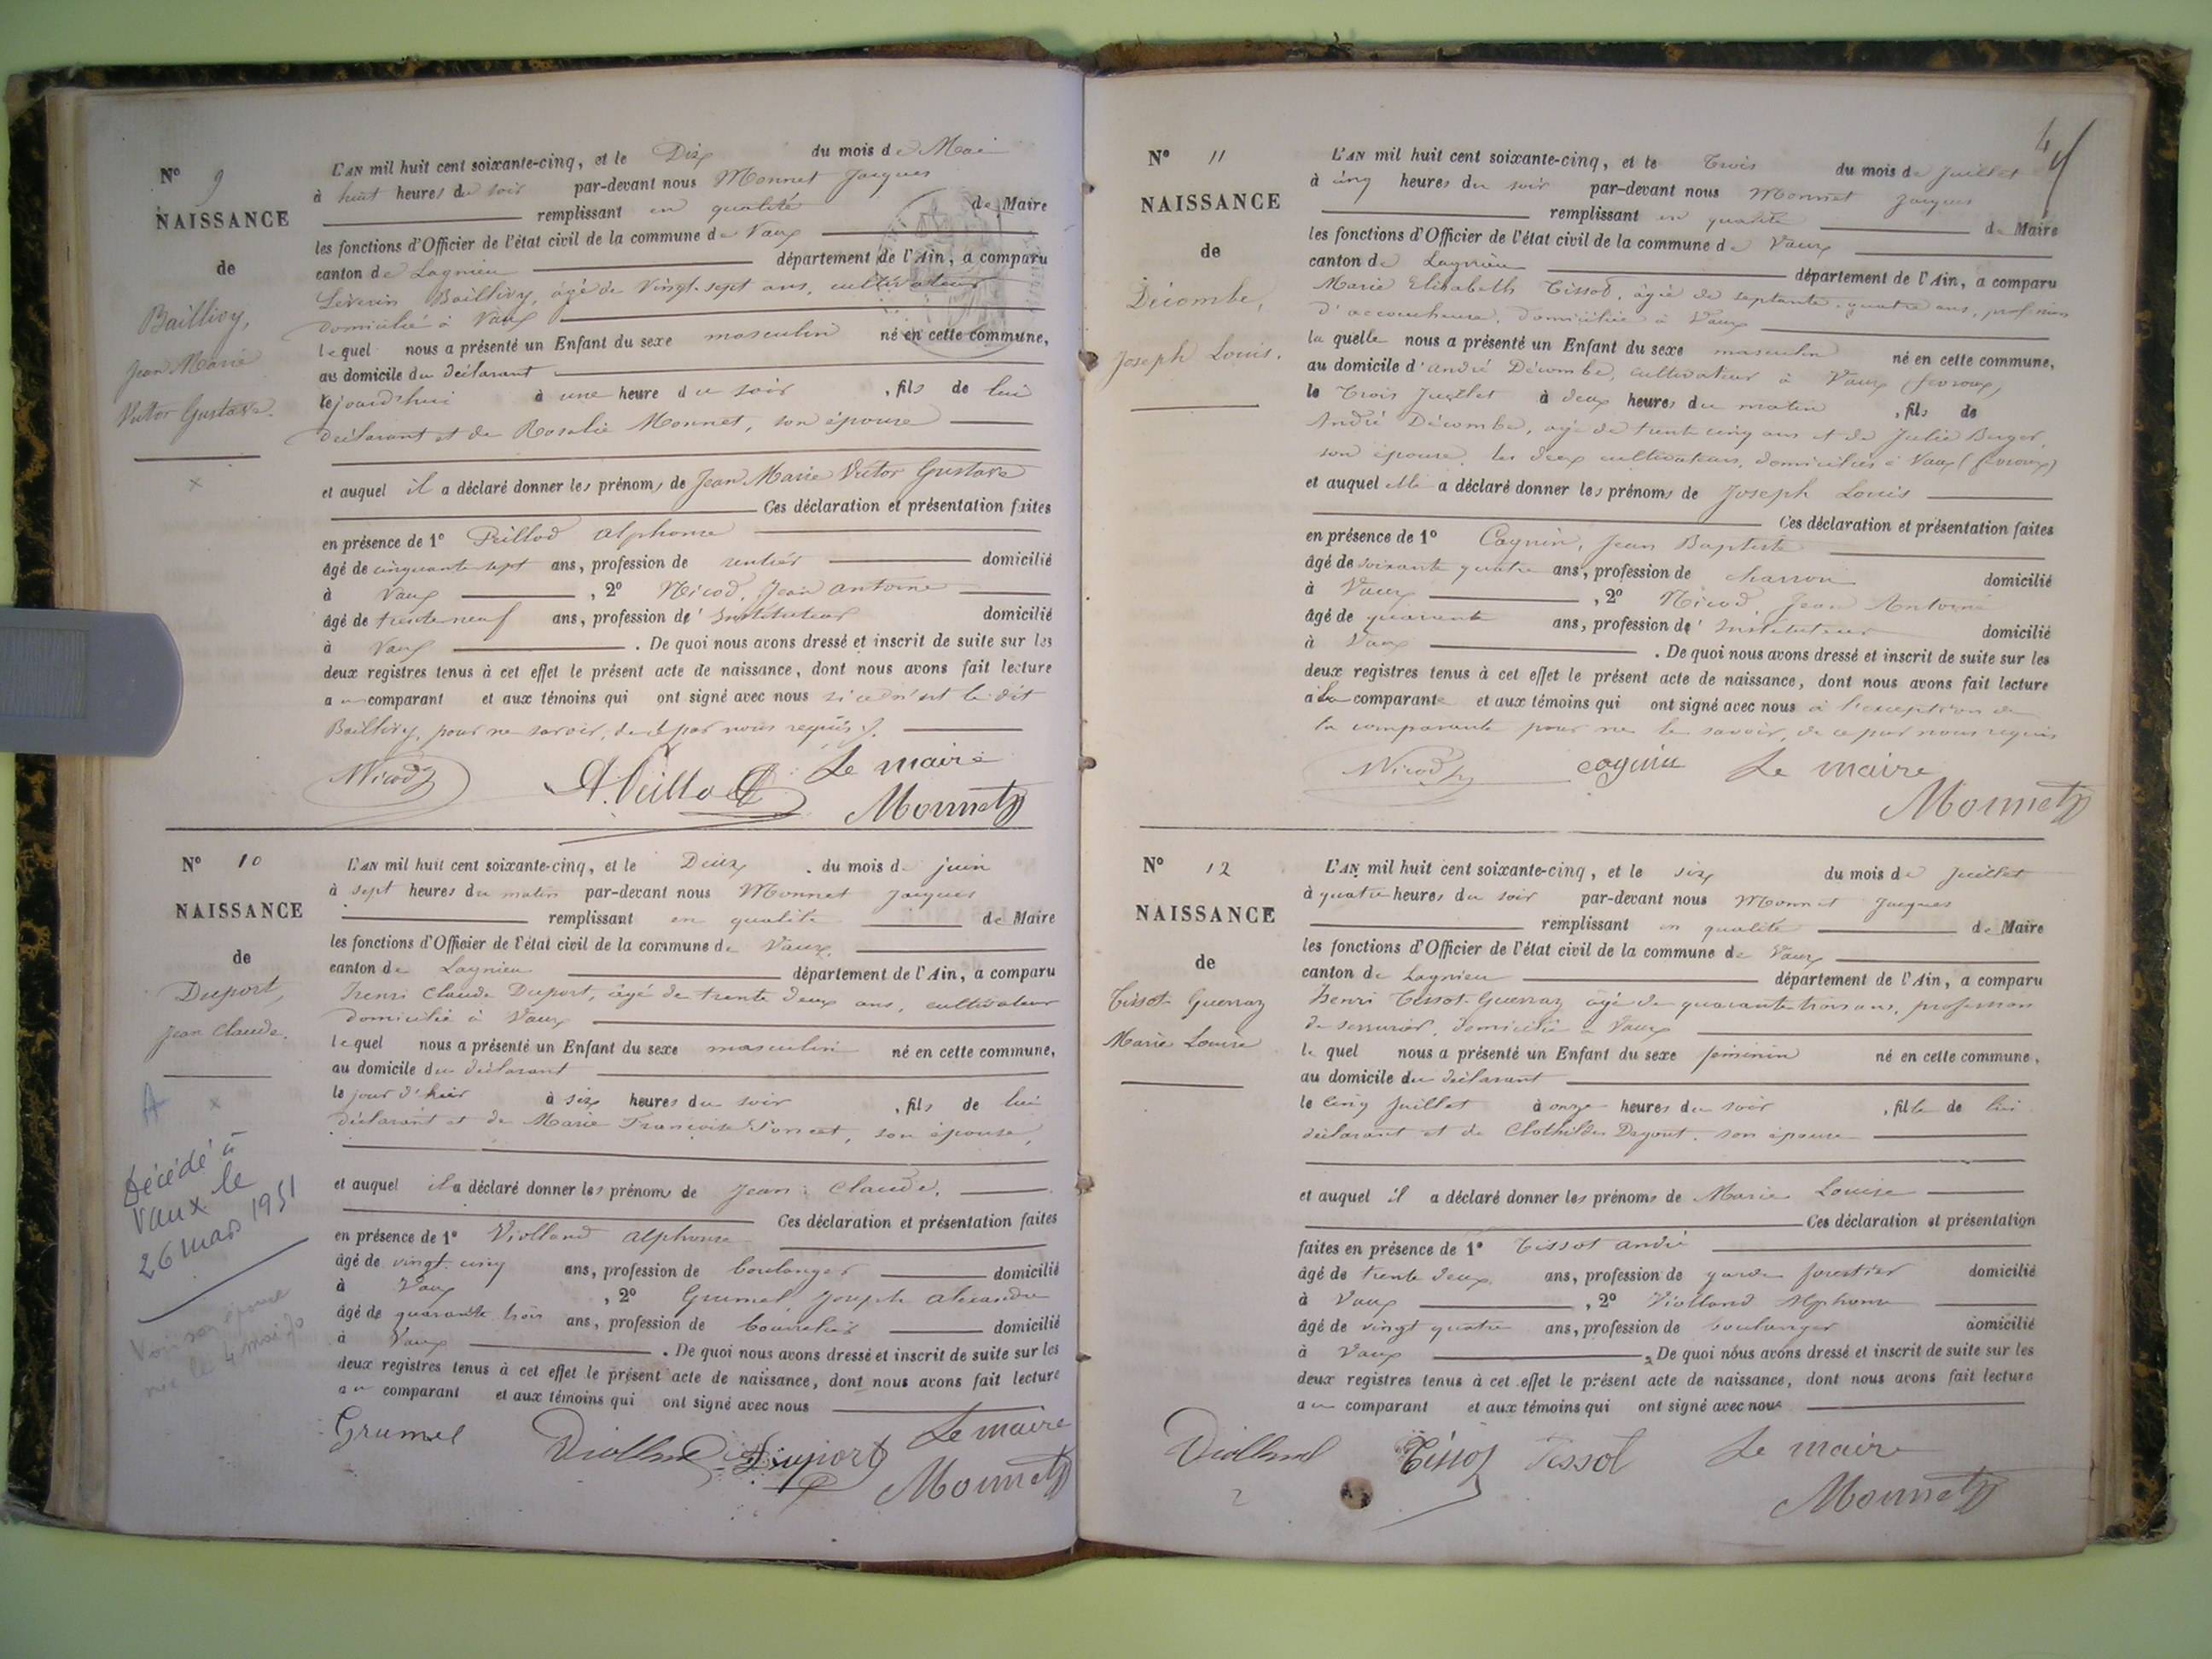 N° 9
NAISSANCE
de
Baillivy,
Jean Marie
Victor Gustave.
L'AN mil huit cent soixante-cinq, et le Dix du mois de Mai
à huit heures du soir par-devant nous Monnet Jacques
remplissant en qualité de Maire
les fonctions d'Officier de l'état civil de la commune de Vaux
canton de Lagnieu département de l'Ain, a comparu
Séverin Baillivy, âgé de Vingt-sept ans, cultivateur
domicilié à Vaux
lequel nous a présenté un Enfant du sexe masculin né en cette commune,
au domicile du déclarant
lejourd'hui à une heure du soir, fils de lui
déclarant et de Rosalie Monnet, son épouse
et auquel il a déclaré donner les prénoms de Jean Marie Victor Gustave
Ces déclaration et présentation faites
en présence de 1° Alphonse
âgé de cinquante sept ans, profession de rentier domicilié
à Vaux, 2° Nicod, Jean Antoine
âgé de trente neuf ans, profession d'Instituteur domicilié
à Vaux. De quoi nous avons dressé et inscrit de suite sur les
deux registres tenus à cet effet le présent acte de naissance, dont nous avons fait lecture
au comparant et aux témoins qui ont signé avec nous si ce n'est le dit
Baillivy, pour ne savoir, de ce par nous requis.
Nicod Le maire
Monnet
N° 10
NAISSANCE
de
Duport,
Jean Claude.
A x
Décédé à
Vaux le
26 mars 1951
Voir son épouse
née le 4 mai 70
L'AN mil huit cent soixante-cinq, et le Deux du mois de juin
à sept heures du matin par-devant nous Monnet Jacques
remplissant en qualité de Maire
les fonctions d'Officier de l'état civil de la commune de Vaux
canton de Lagnieu département de l'Ain, a comparu
Henri Claude Duport, âgé de trente deux ans, cultivateur
domicilié à Vaux
lequel nous a présenté un Enfant du sexe masculin né en cette commune,
au domicile du déclarant
le jour d'hier à six heures du soir, fils de lui
déclarant et de Marie Françoise Poncet, son épouse,
et auquel il a déclaré donner les prénoms de Jean Claude.
Ces déclaration et présentation faites
en présence de 1° Violland Alphonse
âgé de vingt-cinq ans, profession de boulanger domicilié
à Vaux, 2° Grumel Joseph Alexandre
âgé de quarante trois ans, profession de bourrelier domicilié
à Vaux. De quoi nous avons dressé et inscrit de suite sur les
deux registres tenus à cet effet le présent acte de naissance, dont nous avons fait lecture
au comparant et aux témoins qui ont signé avec nous
Grumel Violland Duport Le maire
Monnet
N° 11
NAISSANCE
de
Décombe,
Joseph Louis.
L'AN mil huit cent soixante-cinq, et le Trois du mois de Juillet
à cinq heures du soir par-devant nous Monnet Jacques
remplissant en qualité de Maire
les fonctions d'Officier de l'état civil de la commune de Vaux
canton de Lagnieu département de l'Ain, a comparu
Marie Elisabeth Tissot, âgée de septante-quatre ans, profession
d'accoucheuse, domiciliée à Vaux
la quelle nous a présenté un Enfant du sexe masculin né en cette commune,
au domicile d'André Décombe, cultivateur à Vaux (févroux)
le Trois Juillet à deux heures du matin, fils de
André Décombe, âgé de trente cinq ans et de Julie Berger,
son épouse, les deux cultivateurs, domiciliés à Vaux (févroux)
et auquel elle a déclaré donner les prénoms de Joseph Louis
Ces déclaration et présentation faites
en présence de 1° Cognin, Jean Baptiste
âgé de soixante quatre ans, profession de charron domicilié
à Vaux, 2° Nicod, Jean Antoine
âgé de quarante ans, profession d'Instituteur domicilié
à Vaux. De quoi nous avons dressé et inscrit de suite sur les
deux registres tenus à cet effet le présent acte de naissance, dont nous avons fait lecture
à la comparante et aux témoins qui ont signé avec nous à l'exception de
la comparante pour ne le savoir, de ce par nous requis
Nicod cognin Le maire
Monnet
N° 12
NAISSANCE
de
Tissot-Guerraz
Marie Louise
L'AN mil huit cent soixante-cinq, et le six du mois de Juillet
à quatre heures du soir par-devant nous Monnet Jacques
remplissant en qualité de Maire
les fonctions d'Officier de l'état civil de la commune de Vaux
canton de Lagnieu département de l'Ain, a comparu
Henri Tissot-Guerraz âgé de quarante trois ans, profession
de serrurier, domicilié à Vaux
le quel nous a présenté un Enfant du sexe féminin né en cette commune,
au domicile du déclarant
le cinq Juillet à onze heures du soir, fille de lui
déclarant et de Clothilde Dagout, son épouse
et auquel il a déclaré donner les prénoms de Marie Louise
Ces déclaration et présentation
faites en présence de 1° Tissot André
âgé de trente deux ans, profession de garde forestier domicilié
à Vaux, 2° Violland Alphonse
âgé de vingt quatre ans, profession de boulanger domicilié
à Vaux. De quoi nous avons dressé et inscrit de suite sur les
deux registres tenus à cet effet le présent acte de naissance, dont nous avons fait lecture
au comparant et aux témoins qui ont signé avec nous
Violland Tissot Tissot Le maire
Monnet